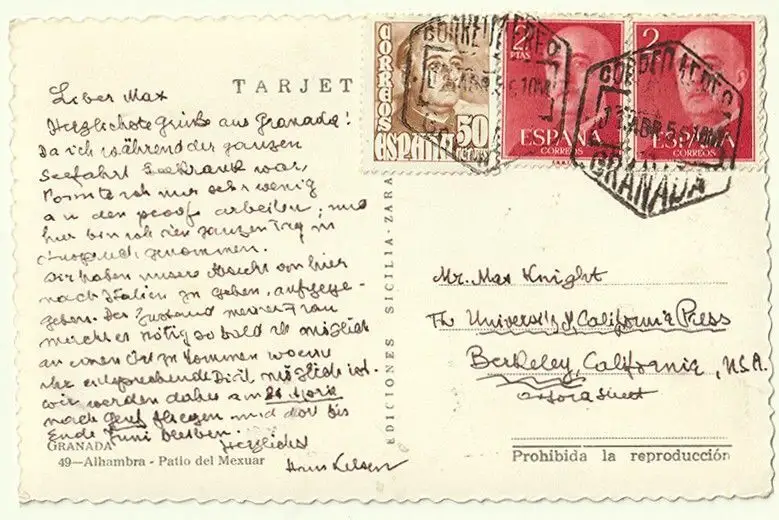 TARJET
Lieber Max
Herzlichste Grüße aus Granada!
Da ich während der ganzen
Seefahrt Seekrank war,
konnte ich nur sehr wenig
an den proofs arbeiten; und
hier bin ich den ganzen Tag in
Anspruch genommen.
Wir haben unsere Absicht von hier
nach Italien zu gehen, aufgege-
geben. Der Zustand meiner Frau
macht es nötig so bald als möglich
an einen Ort zu kommen wo eine
ihr entsprechende Diät möglich ist.
Wir werden daher am
nach Genf fliegen und dort bis
Ende Juni bleiben.
Herzlichst
Hans Kelsen
GRANADA
49—Alhambra - Patio del Mexuar
EDICIONES SICILIA-ZARA
CORREOS
ESPAÑA
50
CENTIMOS
2
PTAS
ESPAÑA
CORREOS
2
ESPAÑA
CORREOS
CORREO AEREO
CORREO AEREO
GRANADA
Mr. Max Knight
The University of California Press
Berkeley, California, U.S.A.
Street
Prohibida la reproducción